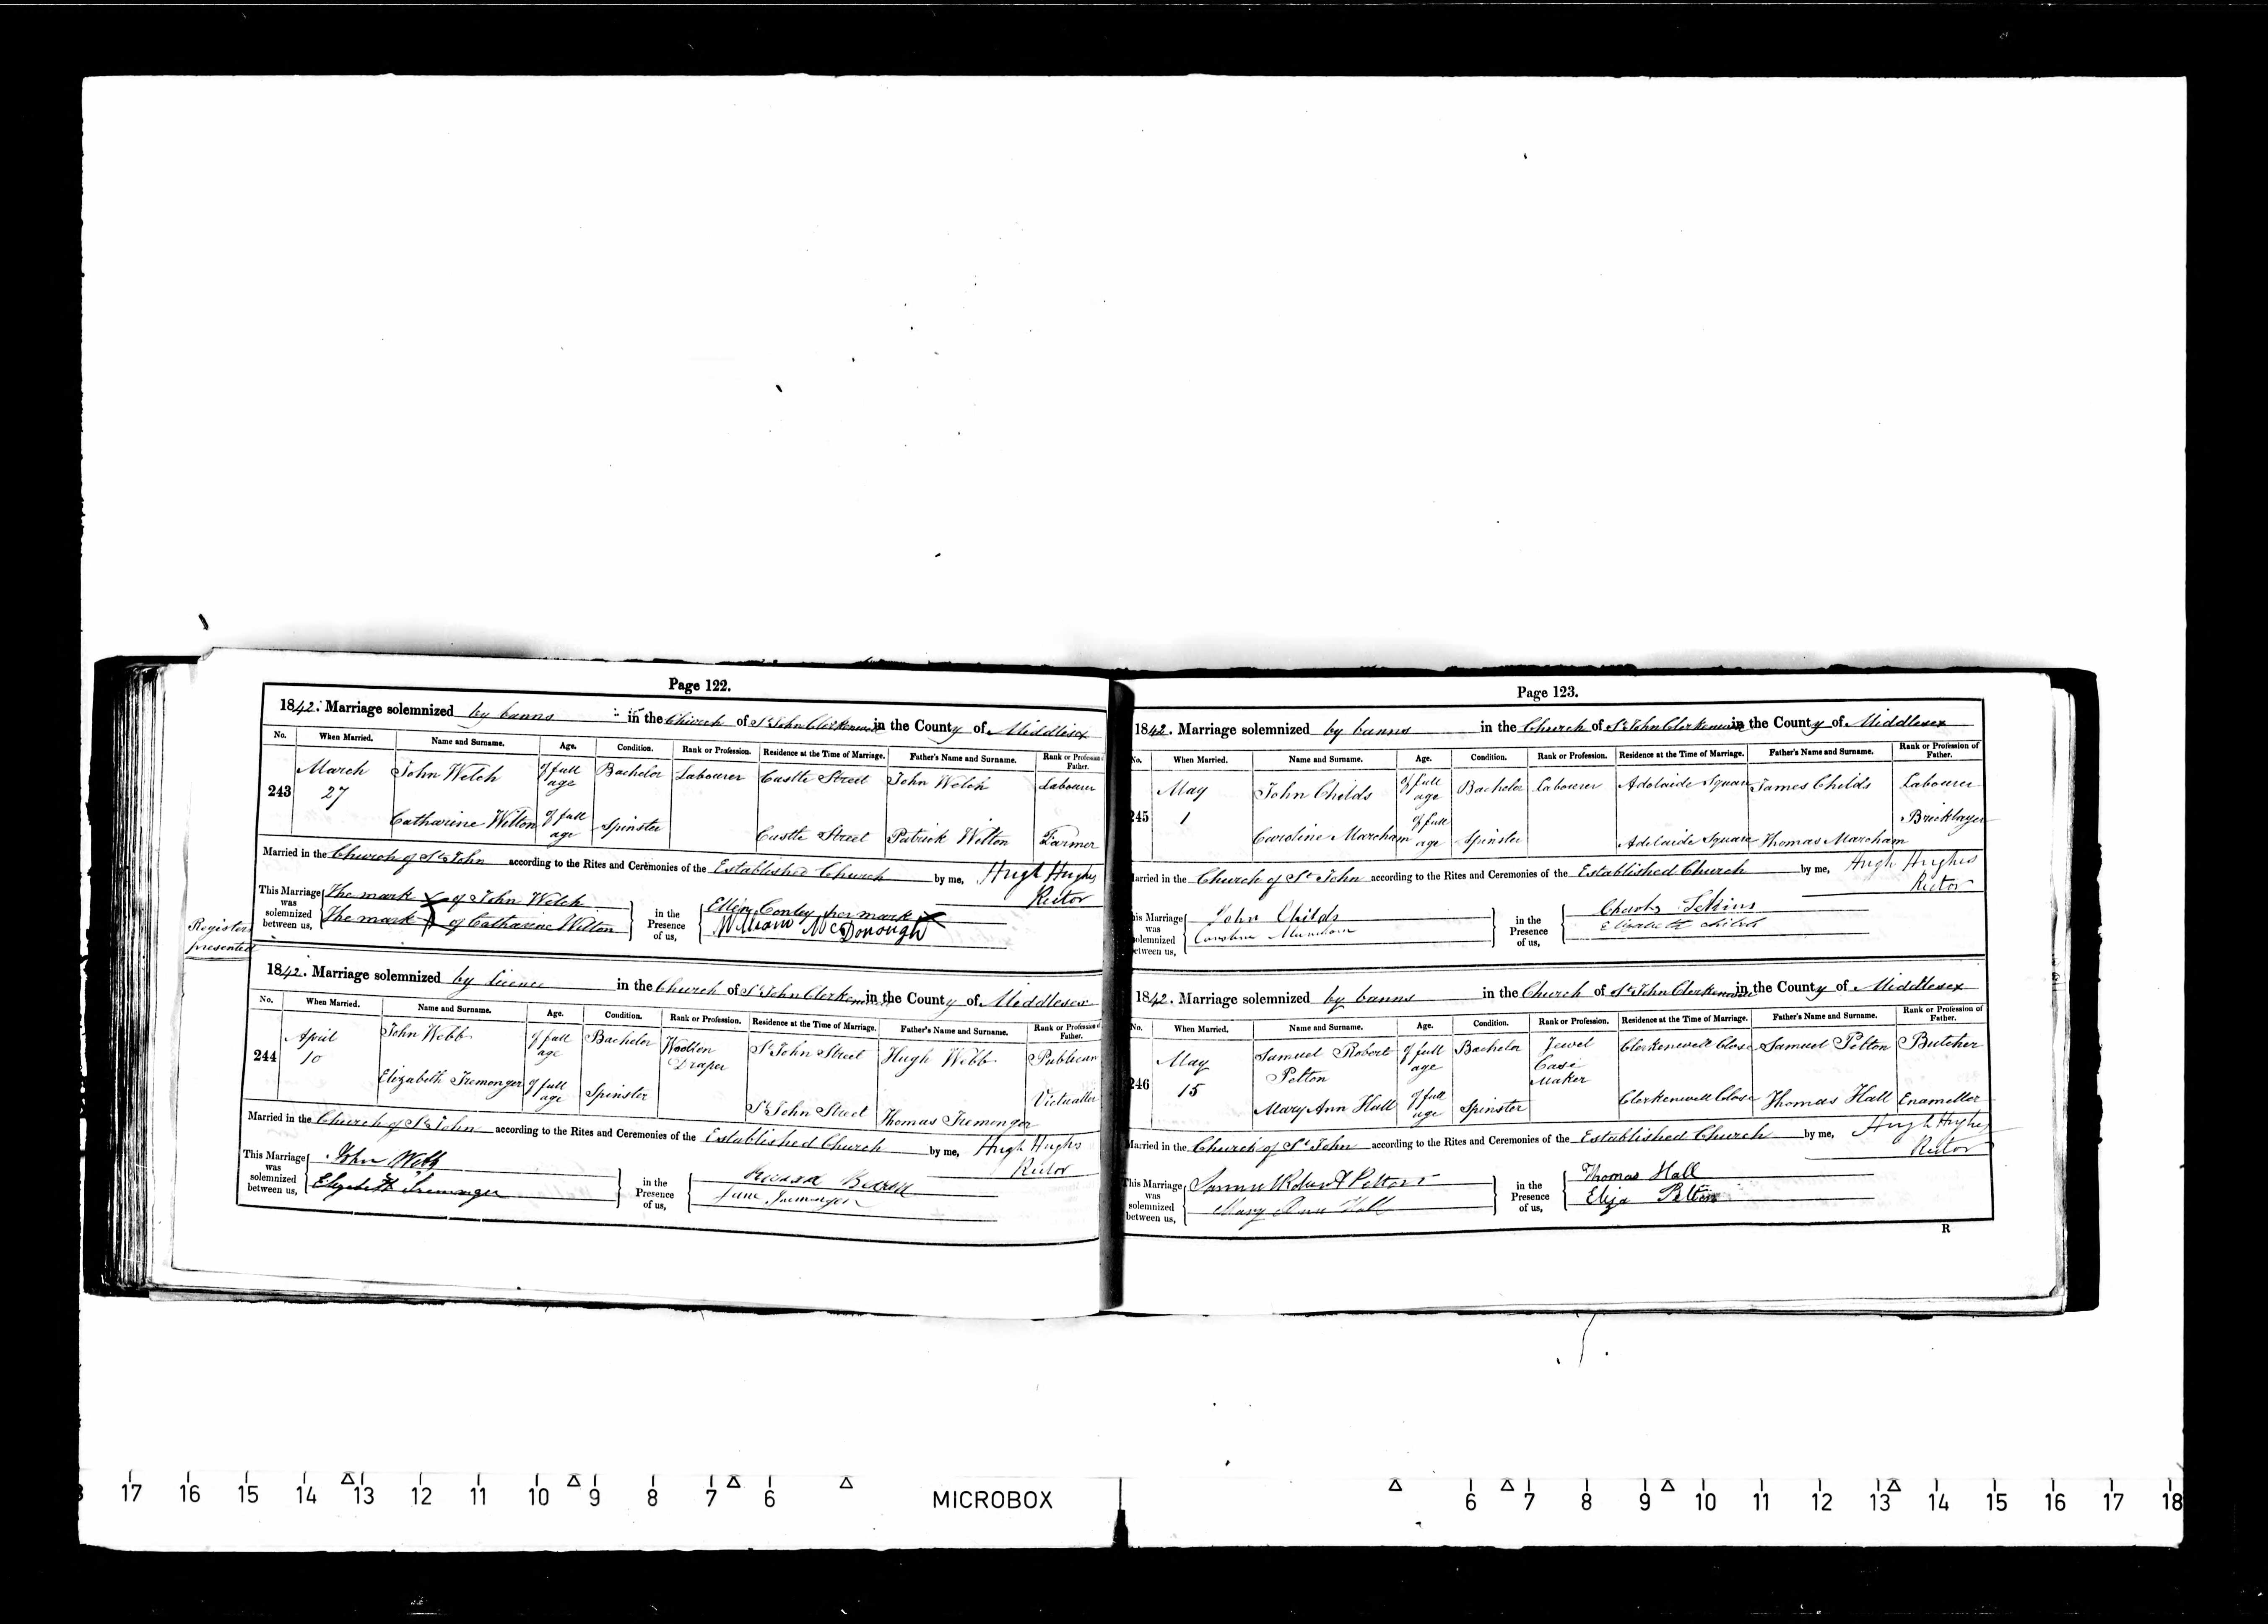 Page 122.
1842. Marriage solemnized by banns in the Church of St John Clerkenwell in the County of Middlesex
No. When Married. Name and Surname. Age. Condition. Rank or Profession. Residence at the Time of Marriage. Father's Name and Surname. Rank or Profession of Father.
243 March 27 John Welch Of full age Bachelor Labourer Castle Street John Welch Labourer
Catharine Wilton Of full age Spinster Castle Street Patrick Wilton Farmer
Married in the Church of St John according to the Rites and Ceremonies of the Established Church by me, Hugh Hughes
Rector
This Marriage was solemnized between us, The mark X of John Welch
The mark X of Catharine Wilton
in the Presence of us, Ellen Conley her mark X
William McDonough
Registers
presented
1842. Marriage solemnized by licence in the Church of St John Clerkenwell in the County of Middlesex
No. When Married. Name and Surname. Age. Condition. Rank or Profession. Residence at the Time of Marriage. Father's Name and Surname. Rank or Profession of Father.
244 April 10 John Webb Of full age Bachelor Woollen Draper St John Street Hugh Webb Publican
Elizabeth Iremonger Of full age Spinster St John Street Thomas Iremonger Victualler
Married in the Church of St John according to the Rites and Ceremonies of the Established Church by me, Hugh Hughes
Rector
This Marriage was solemnized between us, John Webb
Elizabeth Iremonger
in the Presence of us,
Jane Iremonger
Page 123.
1842. Marriage solemnized by banns in the Church of St John Clerkenwell in the County of Middlesex
No. When Married. Name and Surname. Age. Condition. Rank or Profession. Residence at the Time of Marriage. Father's Name and Surname. Rank or Profession of Father.
245 May 1 John Childs Of full age Bachelor Labourer Adelaide Square James Childs Labourer
Caroline Marcham Of full age Spinster Adelaide Square Thomas Marcham Bricklayer
Married in the Church of St John according to the Rites and Ceremonies of the Established Church by me, Hugh Hughes
Rector
This Marriage was solemnized between us, John Childs
Caroline Marcham
in the Presence of us, Charles
Elizabeth Childs
1842. Marriage solemnized by banns in the Church of St John Clerkenwell in the County of Middlesex
No. When Married. Name and Surname. Age. Condition. Rank or Profession. Residence at the Time of Marriage. Father's Name and Surname. Rank or Profession of Father.
246 May 15 Samuel Robert Pelton Of full age Bachelor Jewel Case Maker Clerkenwell Close Samuel Pelton Butcher
Mary Ann Hall Of full age Spinster Clerkenwell Close Thomas Hall Enameller
Married in the Church of St John according to the Rites and Ceremonies of the Established Church by me, Hugh Hughes
Rector
This Marriage was solemnized between us, Samuel Robert Pelton
Mary Ann Hall
in the Presence of us, Thomas Hall
Eliza Pelton
R
17 16 15 14 13 12 11 10 9 8 7 6 MICROBOX 6 7 8 9 10 11 12 13 14 15 16 17 18